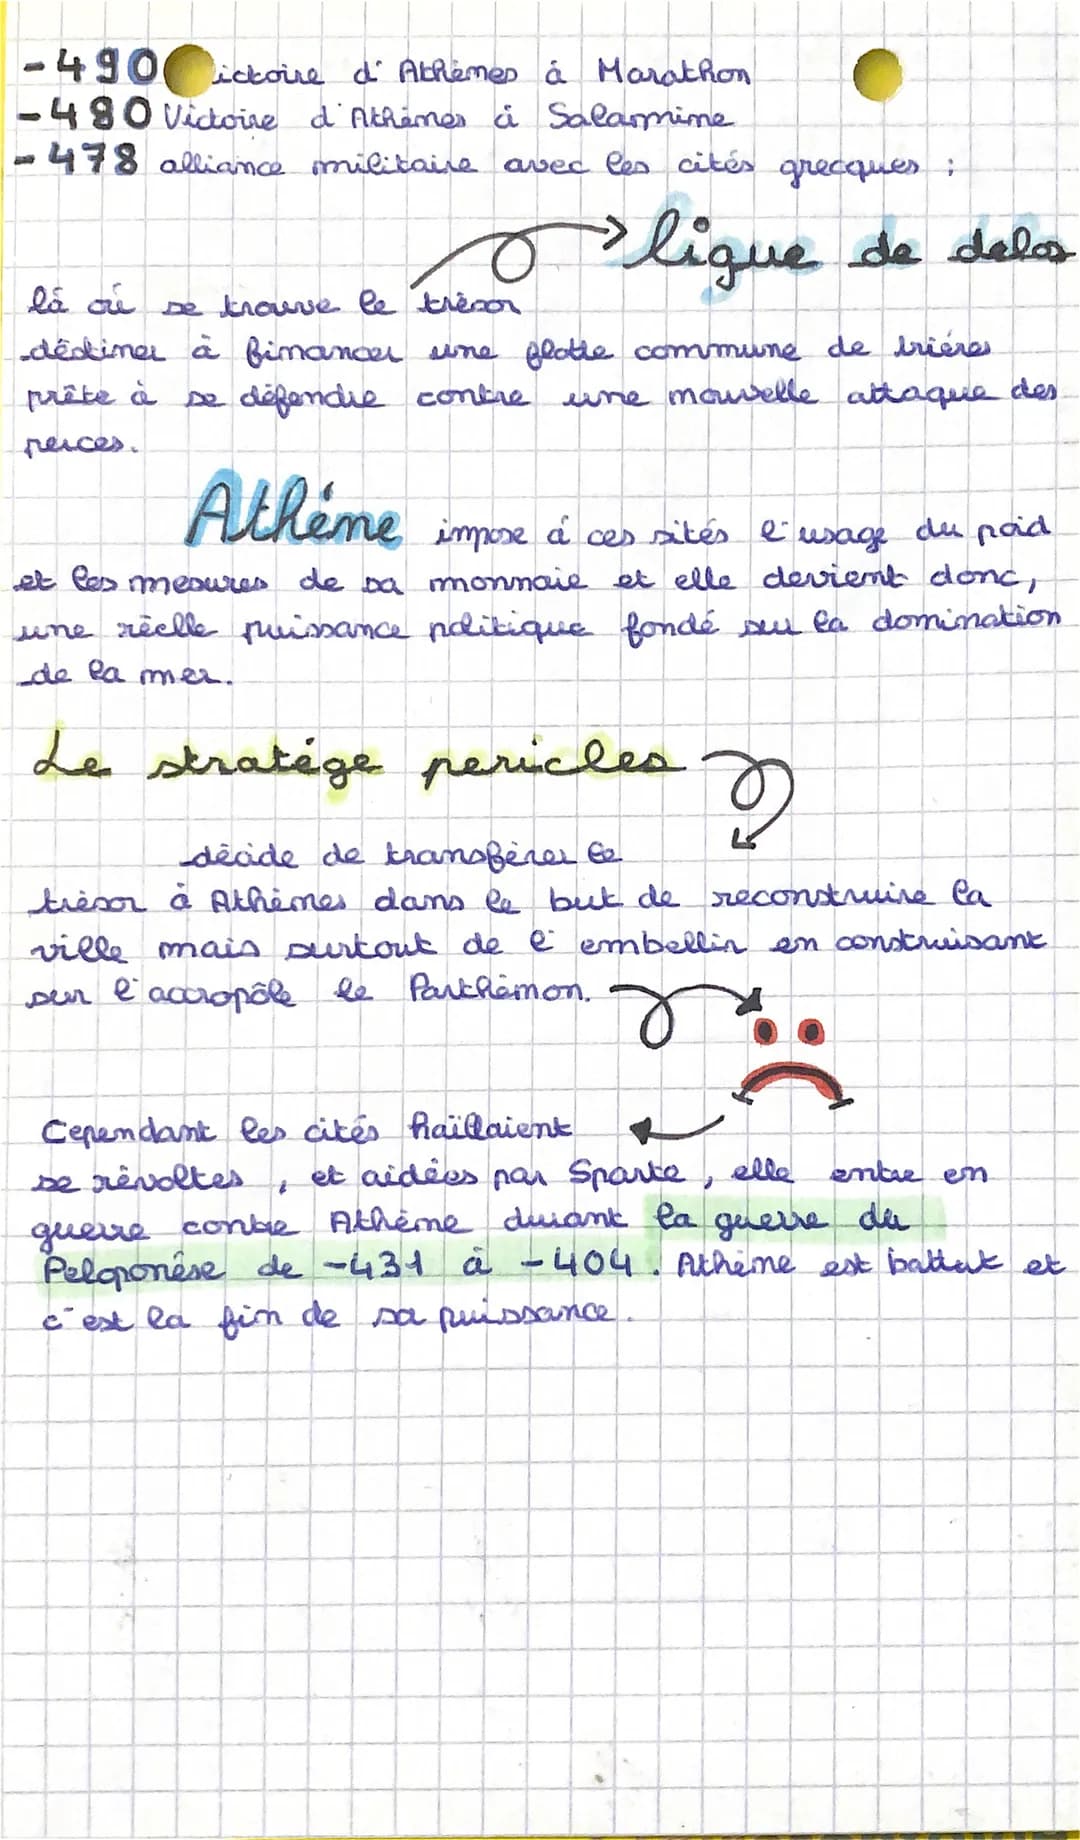 -490 ictoire d'Athènes à Marathon
-480 Victoire d'Athènes à Salamine
-478 alliance militaire avec les cités grecques :
ligue de delos
là où se trouve le trésor
déstiner à financer une flotte commune de trières
prête à se défendre contre une nouvelle attaque des
perces.
Athéne impose à ces sités l'usage du poid
et les mesures de sa monnaie et elle devient donc,
une réelle puissance politique fondé sur la domination
de la mer.
Le stratége pericles
décide de transférer le
trésor à Athènes dans le but de reconstruire la
ville mais surtout de l'embellir en construisant
sur l'accropôle le Parthénon.
Cependant les cités haïllaient
se révoltes, et aidées par Sparte, elle entre en
guerre contre Athène durant la guerre du
Peloponése de -431 à -404. Athène est battut et
c'est la fin de sa puissance.